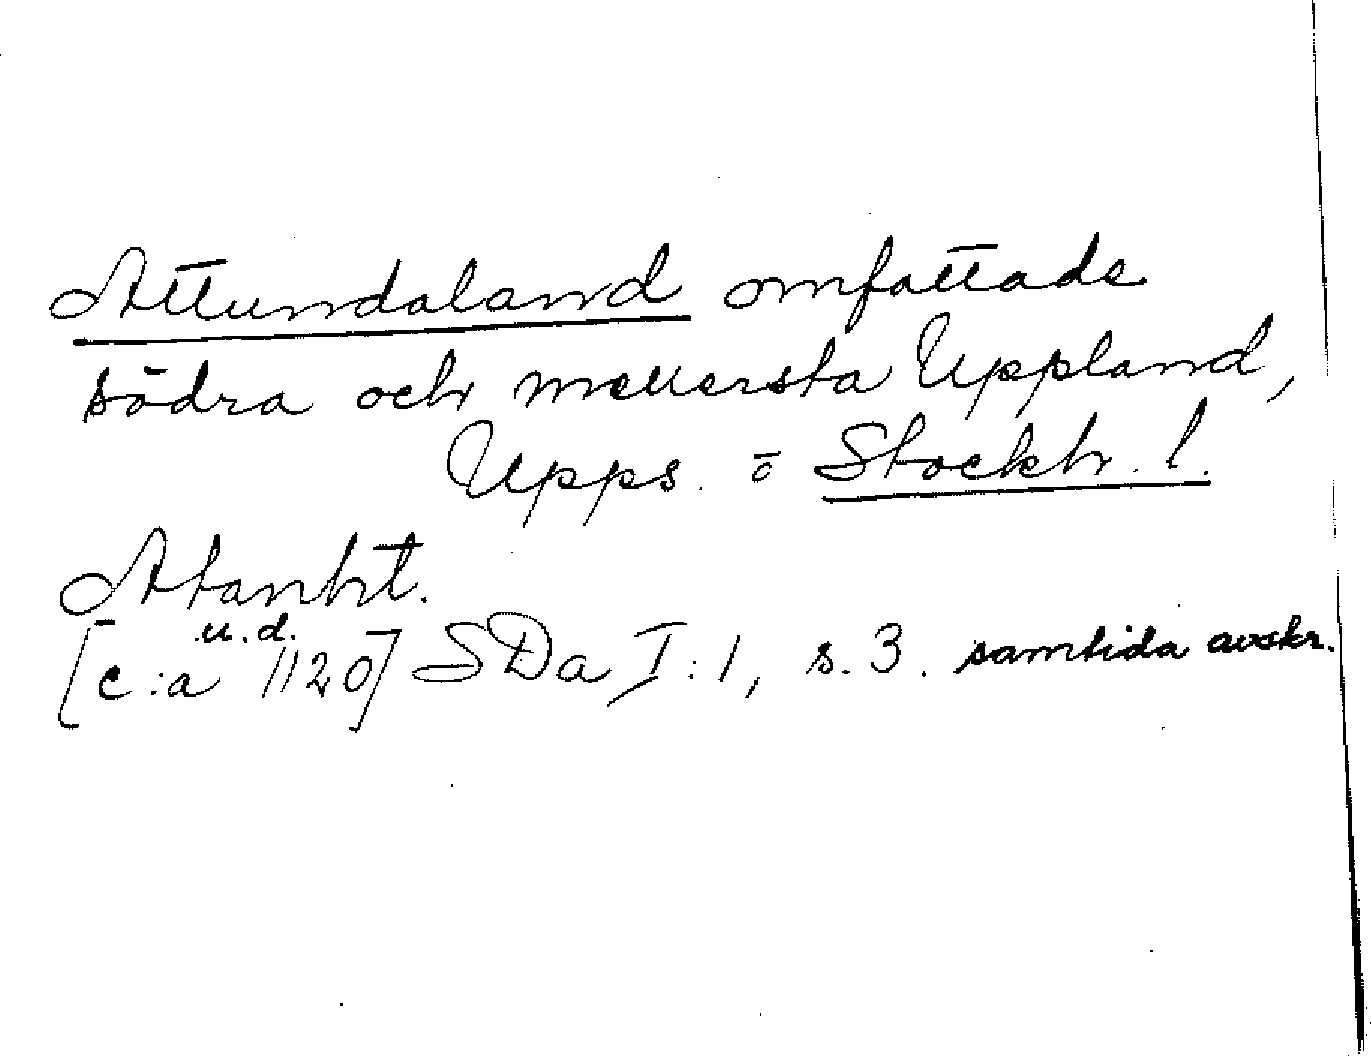 Attundaland omfattade
södra och mellersta Uppland,
Upps. o Stockh. l.
Atanht.
u.d.
[c:a 1120] SDa I:1, s. 3. samtida avskr.